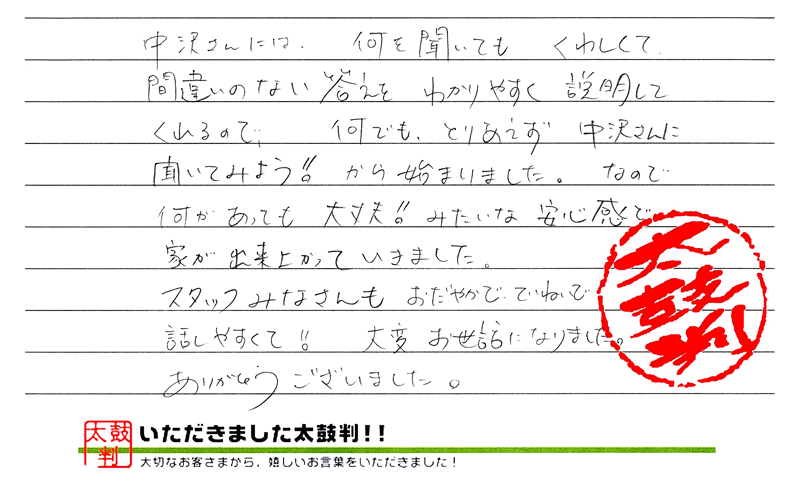 中沢さんには、 何を聞いても くわしくて、
間違いのない 答えを わかりやすく 説明して
くれるので、 何でも、とりあえず 中沢さんに
聞いてみよう!! から 始まりました。 なので
何があっても 大丈夫!! みたいな 安心感で
家が 出来上がって いきました。
スタッフみなさんも おだやかで、ていねいで
話しやすくて!! 大変 お世話になりました。
ありがとう ございました。
太鼓判
太鼓判
いただきました太鼓判!!
大切なお客さまから、嬉しいお言葉をいただきました!